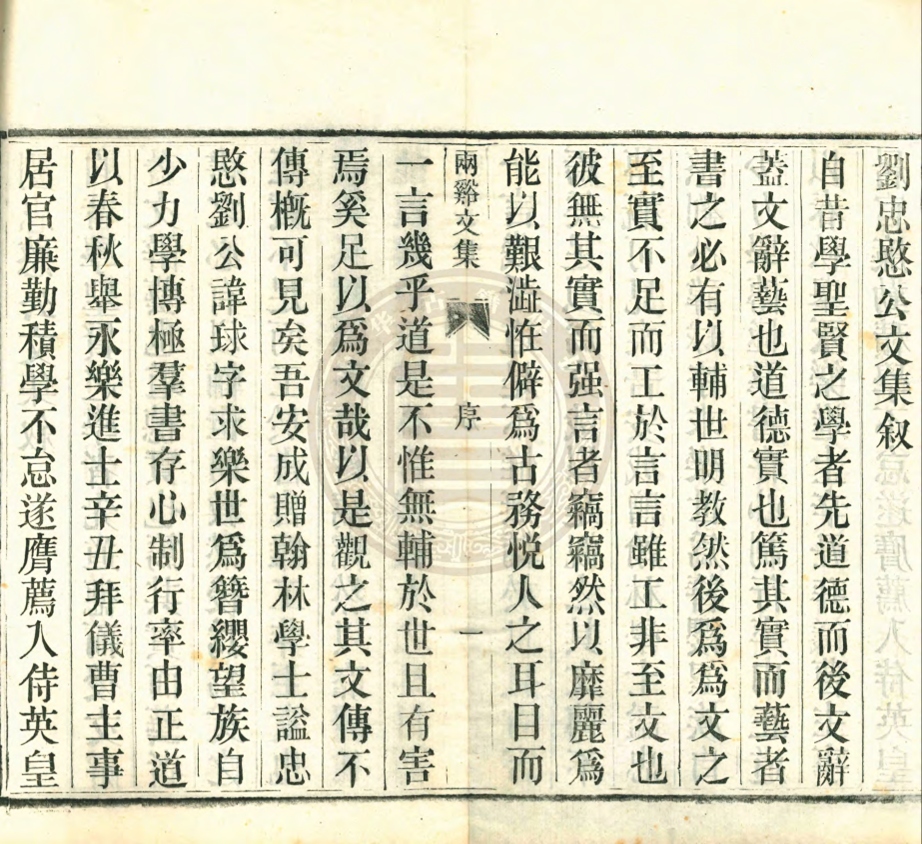 劉忠愍公文集叙
自昔學聖賢之學者先道德而後文辭
蓋文辭藝也道德實也篤其實而藝者
書之必有以輔世明教然後爲爲文之
至實不足而工於言言雖工非至文也
彼無其實而强言者竊竊然以靡麗爲
能以艱澁恠僻爲古務悦人之耳目而
兩谿文集 序 一
一言幾乎道是不惟無輔於世且有害
焉奚足以爲文哉以是觀之其文傳不
傳槪可見矣吾安成贈翰林學士謚忠
愍劉公諱球字求樂世爲簪纓望族自
少力學博極羣書存心制行率由正道
以春秋舉永樂進士辛丑拜儀曹主事
居官廉勤積學不怠遂膺薦入侍英皇